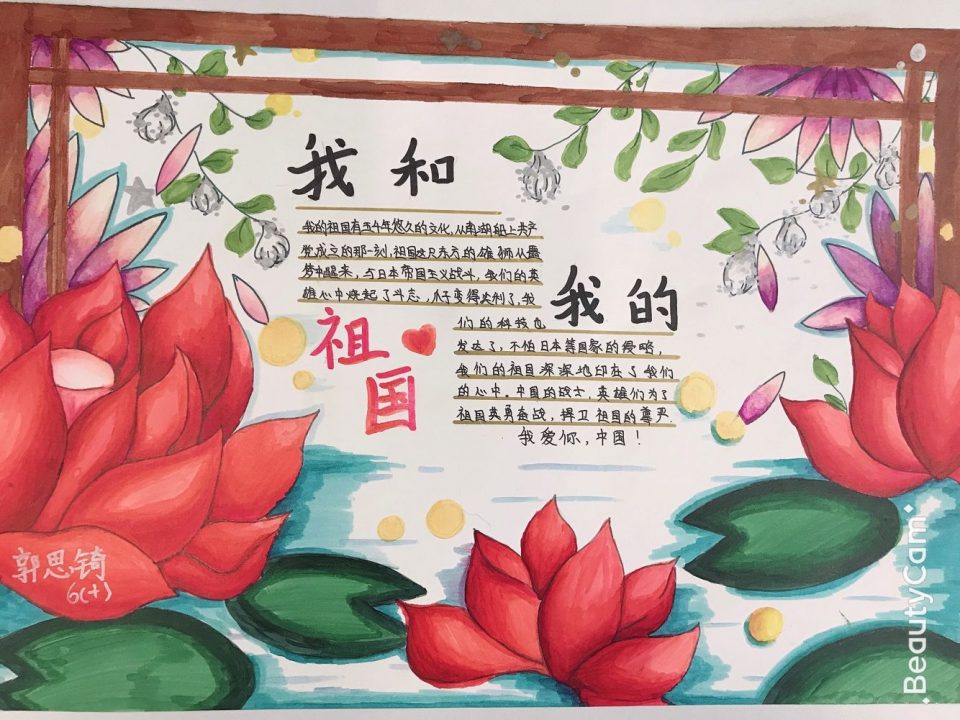 我和
我的祖国有五千年悠久的文化,从南湖船上共产
党成立的那一刻,祖国这只东方的雄狮从噩
梦中醒来,与日本帝国主义战斗,我们的英
雄心中烧起了斗志,爪子变得尖利了,我
我的
祖国
们的科技也
发达了,不怕日本等国家的侵略,
我们的祖国深深地印在了我们
的心中。中国的战士,英雄们为了
祖国英勇奋战,捍卫祖国的尊严.
我爱你,中国!
郭思锜
6(十)
BeautyCam